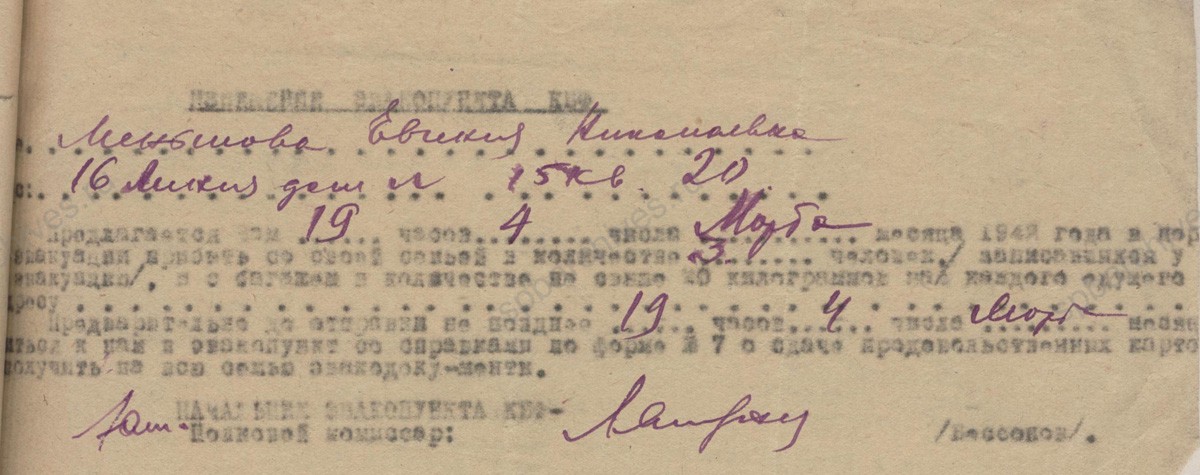 ИЗВЕЩЕНИЕ ЭВАКОПУНКТА КБФ
Меньшова Евгения Николаевна
16 Линия дом № 15 кв. 20
Предлагается Вам 19 часов 4 числа Марта месяца 1942 года в пор
эвакуации прибыть со своей семьей в количестве 3 человек/ записавшихся у
эвакуацию/, и с багажем в количестве не свыше 20 килограммов на каждого едущего
дресу
Предварительно до отправки не позднее 19 часов 4 числа Марта месяца
иться к нам в эвакопункт со справками по форме № 7 о сдаче продовольственных карто
получить на всю семью эвакодокументы.
НАЧАЛЬНИК ЭВАКОПУНКТА КБФ-
Зам. Полковой комиссар: /Бессонов/.